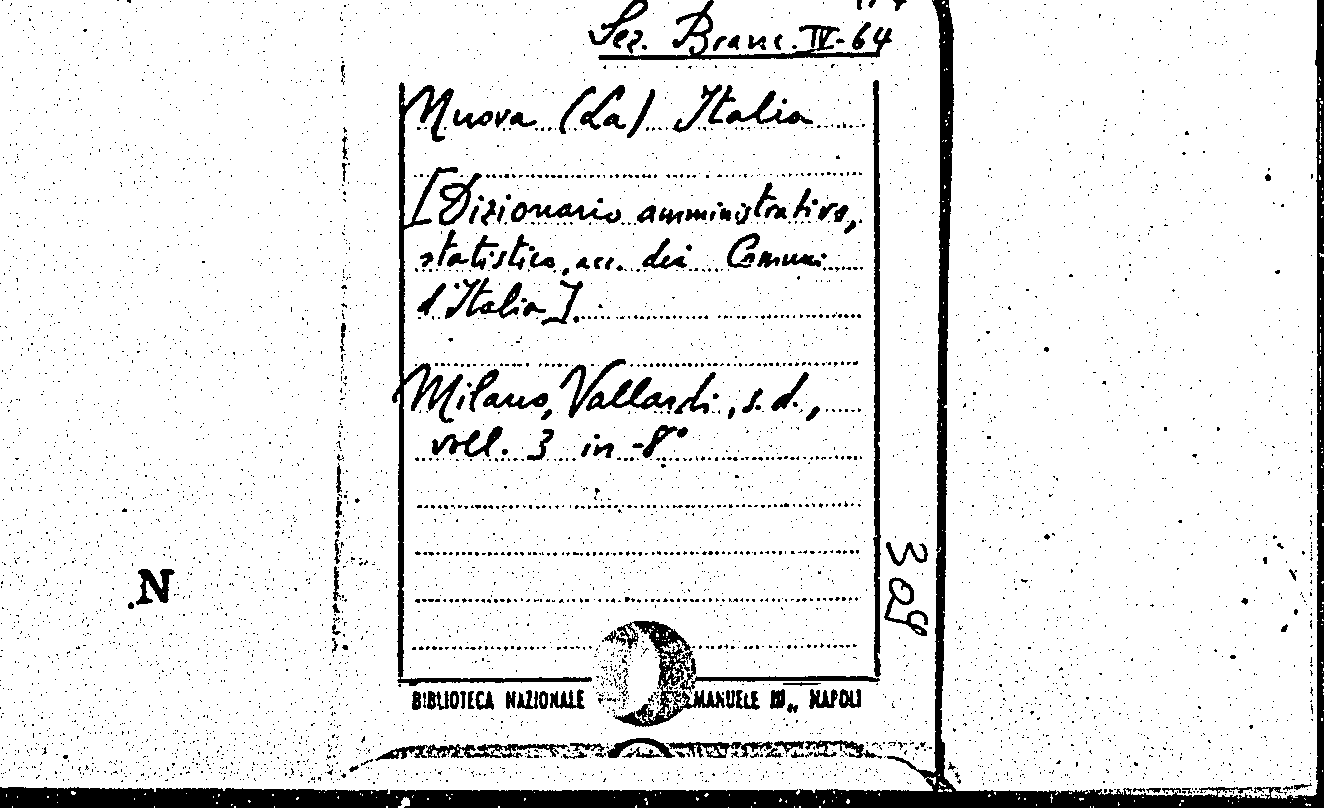 Sez. Branc. IV-64
Nuova (La) Italia
[Dizionario amministrativo,
statistico, ecc. dei Comuni
d'Italia].
Milano, Vallardi, s. d.,
voll. 3 in -8°
309
.N
BIBLIOTECA NAZIONALE MANUELE III„ NAPOLI